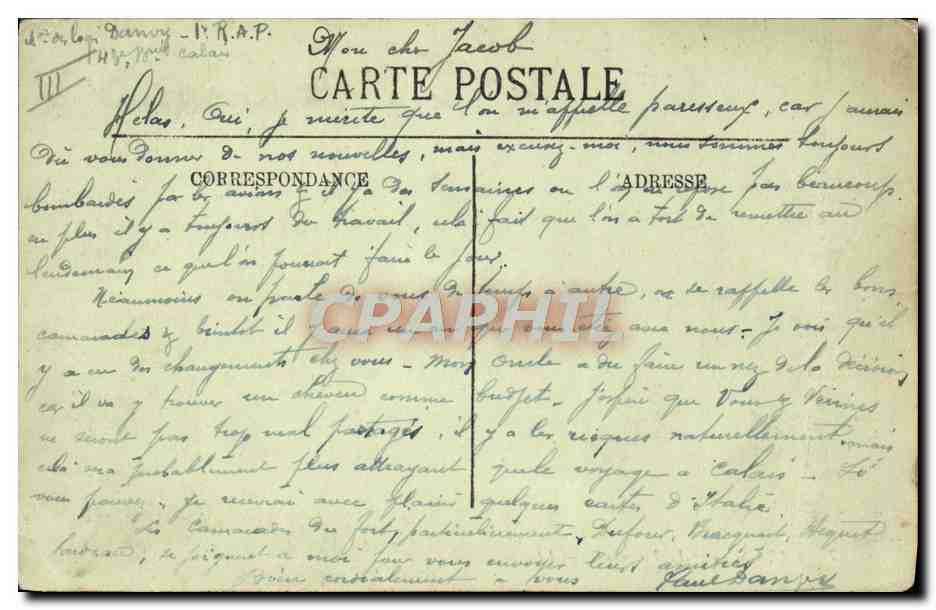 Danvy - 1r R.A.P.
Calais
III
Mon cher Jacob
CARTE POSTALE
Helas, Oui, je mérite que l'on m'appelle paresseux, car j'aurais
dû vous donner de nos nouvelles, mais excusez-moi, nous sommes toujours
CORRESPONDANCE
ADRESSE
bombardés par les avions & il y a des semaines ou l'on ne repose pas beaucoup
en plus il y a toujours du travail, cela fait que l'on a tort de remettre au
lendemain ce que l'on pourrait faire le jour.
Néanmoins on parle de vous de temps à autre, on se rappelle les bons
camarades & bientot il y aura un an que vous etiez avec nous - Je vois qu'il
CPAPHIL
y a eu des changements chez vous - Mon Oncle a du faire un nez de la décision
car il va y trouver un cheveu comme budget - J'espère que Vous &
ne seront pas trop mal partagés, il y a les risques naturellement mais
cela sera probablement plus attrayant que le voyage a Calais - Si
vous pouvez, je recevrai avec plaisir quelques cartes d'Italie.
Les camarades du fort, particulièrement, Dufour, Bracquart, Hequet
se joignent a moi pour vous envoyer leurs amitiés
Bien cordialement a vous
Paul Danvy